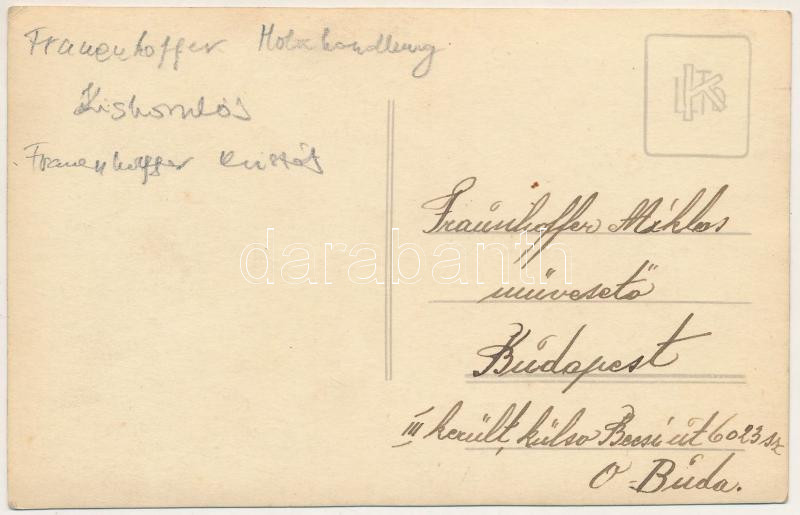 Frauenhoffer Holzhandlung
Kiskomlós
Frauenhoffer
Fraunhoffer Miklos
művesető
Budapest
III került, külso Becsi út 6023 sz
O-Buda.
darabanth